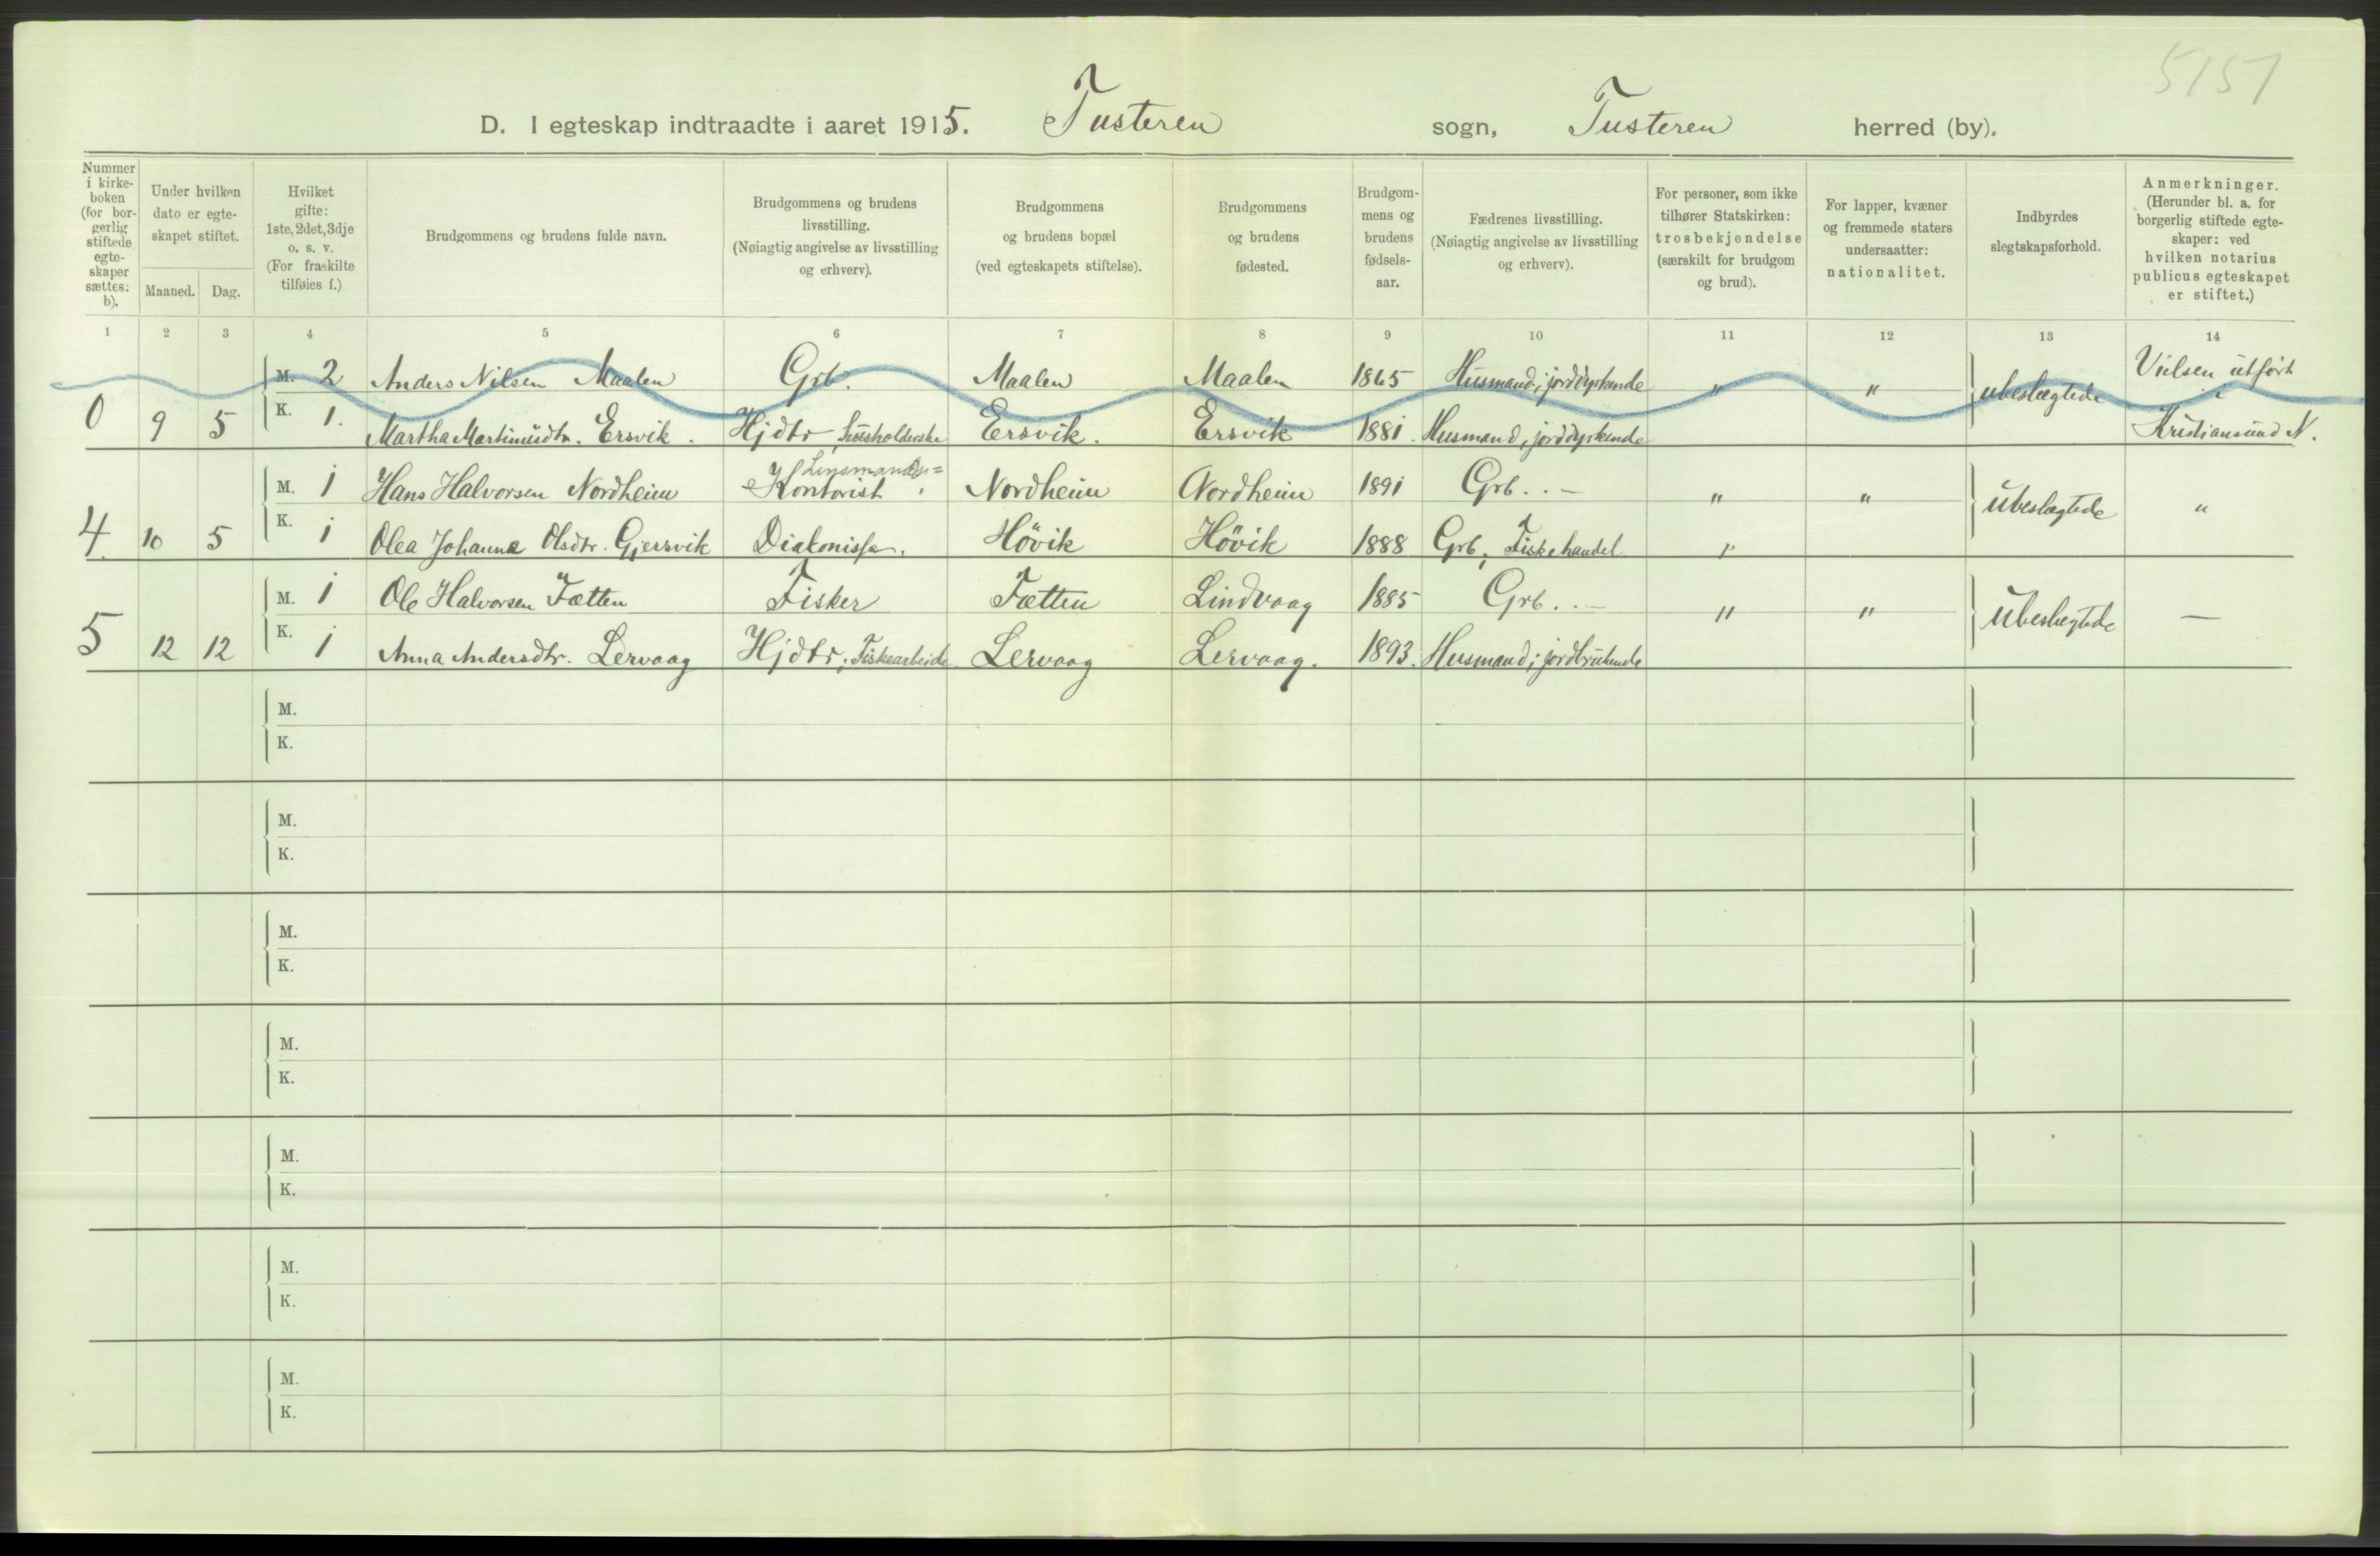 5151
D. I egteskap indtraadte i aaret 1915. Tusteren sogn, Tusteren herred (by).
Nummer i kirke-boken (for bor-gerlig stiftede egte-skaper sættes: b).
Under hvilken dato er egte-skapet stiftet.
Maaned. Dag.
Hvilket gifte: 1ste, 2det, 3dje o. s. v. (For fraskilte tilføies f.)
Brudgommens og brudens fulde navn.
Brudgommens og brudens livsstilling. (Nøiagtig angivelse av livsstilling og erhverv).
Brudgommens og brudens bopæl (ved egteskapets stiftelse).
Brudgommens og brudens fødested.
Brudgom-mens og brudens fødsels-aar.
Fædrenes livsstilling. (Nøiagtig angivelse av livsstilling og erhverv).
For personer, som ikke tilhører Statskirken: trosbekjendelse (særskilt for brudgom og brud).
For lapper, kvæner og fremmede staters undersaatter: nationalitet.
Indbyrdes slegtskapsforhold.
Anmerkninger. (Herunder bl. a. for borgerlig stiftede egte-skaper: ved hvilken notarius publicus egteskapet er stiftet.)
1 2 3 4 5 6 7 8 9 10 11 12 13 14
M. 2 Anders Nilsen Maalen Grb. Maalen Maalen 1865 Husmand; jorddyrkende " " ubeslægtede Vielsen utført i
0 9 5 K. 1. Martha Martinusdtr. Ersvik. Hjdtr husholderske Ersvik. Ersvik 1881. Husmand, jorddyrkende Kristiansund N.
Lensmands=
M. 1 Hans Halvorsen Nordheim Kontorist. Nordheim Nordheim 1891 Grb. . — " " ubeslægtede "
4. 10 5 K. 1 Olea Johanna Olsdtr. Gjersvik Diakonisse. Hövik Hövik 1888 Grb, Fiskehandel "
M. 1 Ole Halvorsen Fætten Fisker Fætten Lindvaag 1885 Grb. . — " " Ubeslegtede —
5 12 12 K. 1 Anna Andersdtr. Lervaag Hjdtr, Fiskearbeide Lervaag Lervaag. 1893. Husmand; jordbrukende
M.
K.
M.
K.
M.
K.
M.
K.
M.
K.
M.
K.
M.
K.